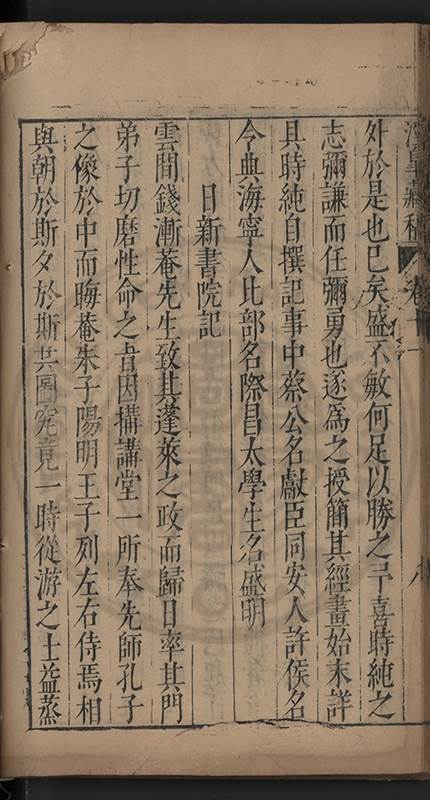 外於是也已矣盛不敏何足以勝之予喜時純之
志彌謙而任彌勇也遂爲之授簡其經畫始末詳
具時純自撰記事中蔡公名獻臣同安人許侯名
令典海寧人比部名際昌太學生名盛明
日新書院記
雲間錢漸菴先生致其蓬萊之政而歸日率其門
弟子切磨性命之旨因搆講堂一所奉先師孔子
之像於中而晦菴朱子陽明王子列左右侍焉相
與朝於斯夕於斯共圖究竟一時從游之士益蒸